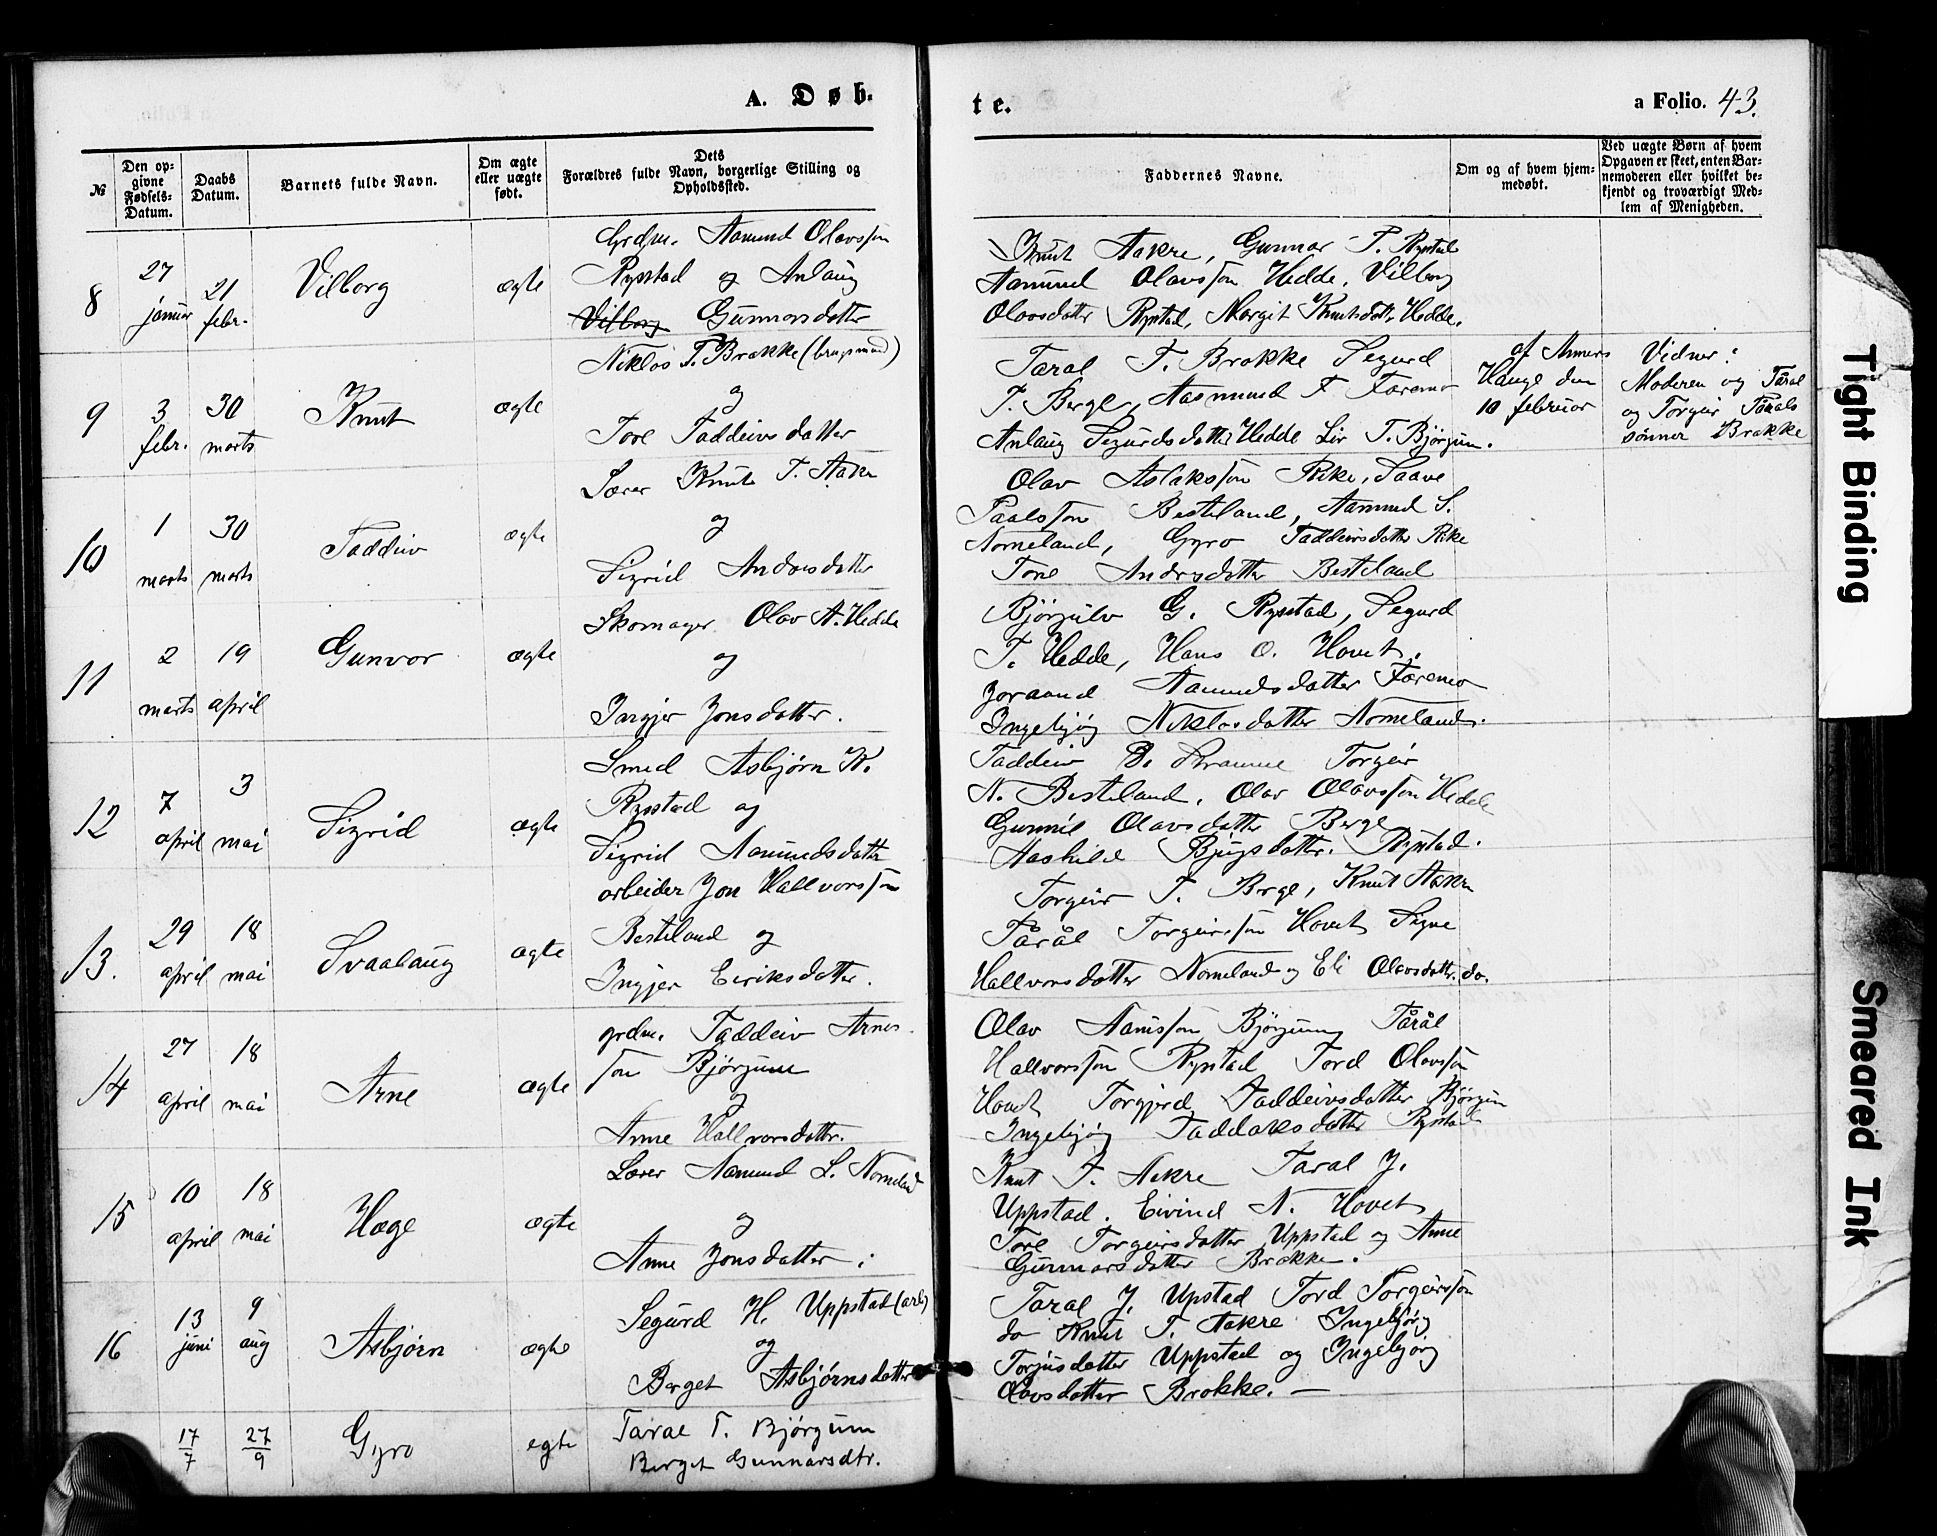 A. Døb-
te.
a Folio. 43.
№
Den op-
givne
Fødsels-
Datum.
Daabs
Datum.
Barnets fulde Navn.
Om ægte
eller uægte
født.
Dets
Forældres fulde Navn, borgerlige Stilling og
Opholdssted.
Faddernes Navne.
Om og af hvem hjem-
medøbt.
Ved uægte Børn af hvem
Opgaven er skeet, enten Bar-
nemoderen eller hvilket be-
kjendt og troværdigt Med-
lem af Menigheden.
8
27
januar
21
febr.
Vilborg
ægte
Grdm. Aamund Olavsson
Rysstad og Anlaug
Vilborg Gunnarsdatter
Knut Aakre, Gunnar T. Rystad
Aamund Olavsson Hedde, Vilborg
Olavsdatter Rystad, Margit Knutsdatt. Hedde.
9
3
febr.
30
marts
Knut
ægte
Niklos T. Brokke (brugsmand)
og
Tore Taddeivsdatter
Taral T. Brokke Segurd
T. Berge, Aasmund T. Faremo
Anlaug Segurdsdatter Hedde Liv T. Bjørgum.
af Anners
Hauge den
10 februar
Vidner:
Moderen og Tåral
og Torgeir Tårals
sønner Brokke
10
1
marts
30
marts
Taddeiv
ægte
Lærer Knut T. Aakre
og
Sigrid Andersdatter
Olav Aslaksson Rike, Saave
Paalsson Besteland, Aamund S.
Nomeland, Gyro Taddeivsdatter Rike
Tone Andersdatter Besteland
11
2
marts
19
april
Gunvor
ægte
Skomager Olav A. Hedde
og
Ingjer Jonsdatter.
Bjørgulv G. Rysstad, Segurd
T. Hedde, Hans O. Hovet.
Joraand Aamundsdatter Faremo
Ingebjøg Niklosdatter Nomeland.
12
7
april
3
mai
Sigrid
ægte
Smed Asbjørn K.
Rysstad og
Sigrid Aamundsdatter
Taddeiv B. Straume Torgeir
N. Besteland, Olav Olavsson Hedde
Gunnil Olavsdatter Berge
Aashild Bjugsdatter. Rystad.
13.
29
april
18
mai
Svaalaug
ægte
arbeider Jon Hallvorsson
Besteland og
Ingjer Eiriksdatter.
Torgeir T. Berge, Knut Aakre
Tåral Torgeirsson Hovet Signe
Hallvorsdatter Nomeland og Eli Olavsdatter do.
14
27
april
18
mai
Arne
ægte
grdm. Taddeiv Arnes-
son Bjørgum
og
Anne Hallvorsdattr.
Olav Aanisson Bjørgum Tåral
Hallvorsson Rystad Tord Olavsson
Hovet Torgjerd Taddeivsdatter Bjørgum
Ingebjøg Taddaksdatter Rystad
15
10
april
18
mai
Hæge
ægte
Lærer Aamund L. Nomeland
og
Anne Jonsdatter.
Knut T. Aakre Taral J.
Uppstad. Eivind N. Hovet
Tore Torgeirsdatter Uppstad og Anne
Gunnarsdatter Brokke.
16
13
juni
9
aug
Asbjørn
ægte
Segurd H. Uppstad (arb)
og
Berget Asbjørnsdatter
Taral J. Upstad Tord Torgeirsson
do Knut T. Aakre Ingebjørg
Torjusdatter Uppstad og Ingebjørg
Olavsdatter Brokke. —
17/7
27/9
Gyro
egte
Taral T. Bjørgum
Berget Gunnarsdtr.
Tight Binding
Smeared Ink